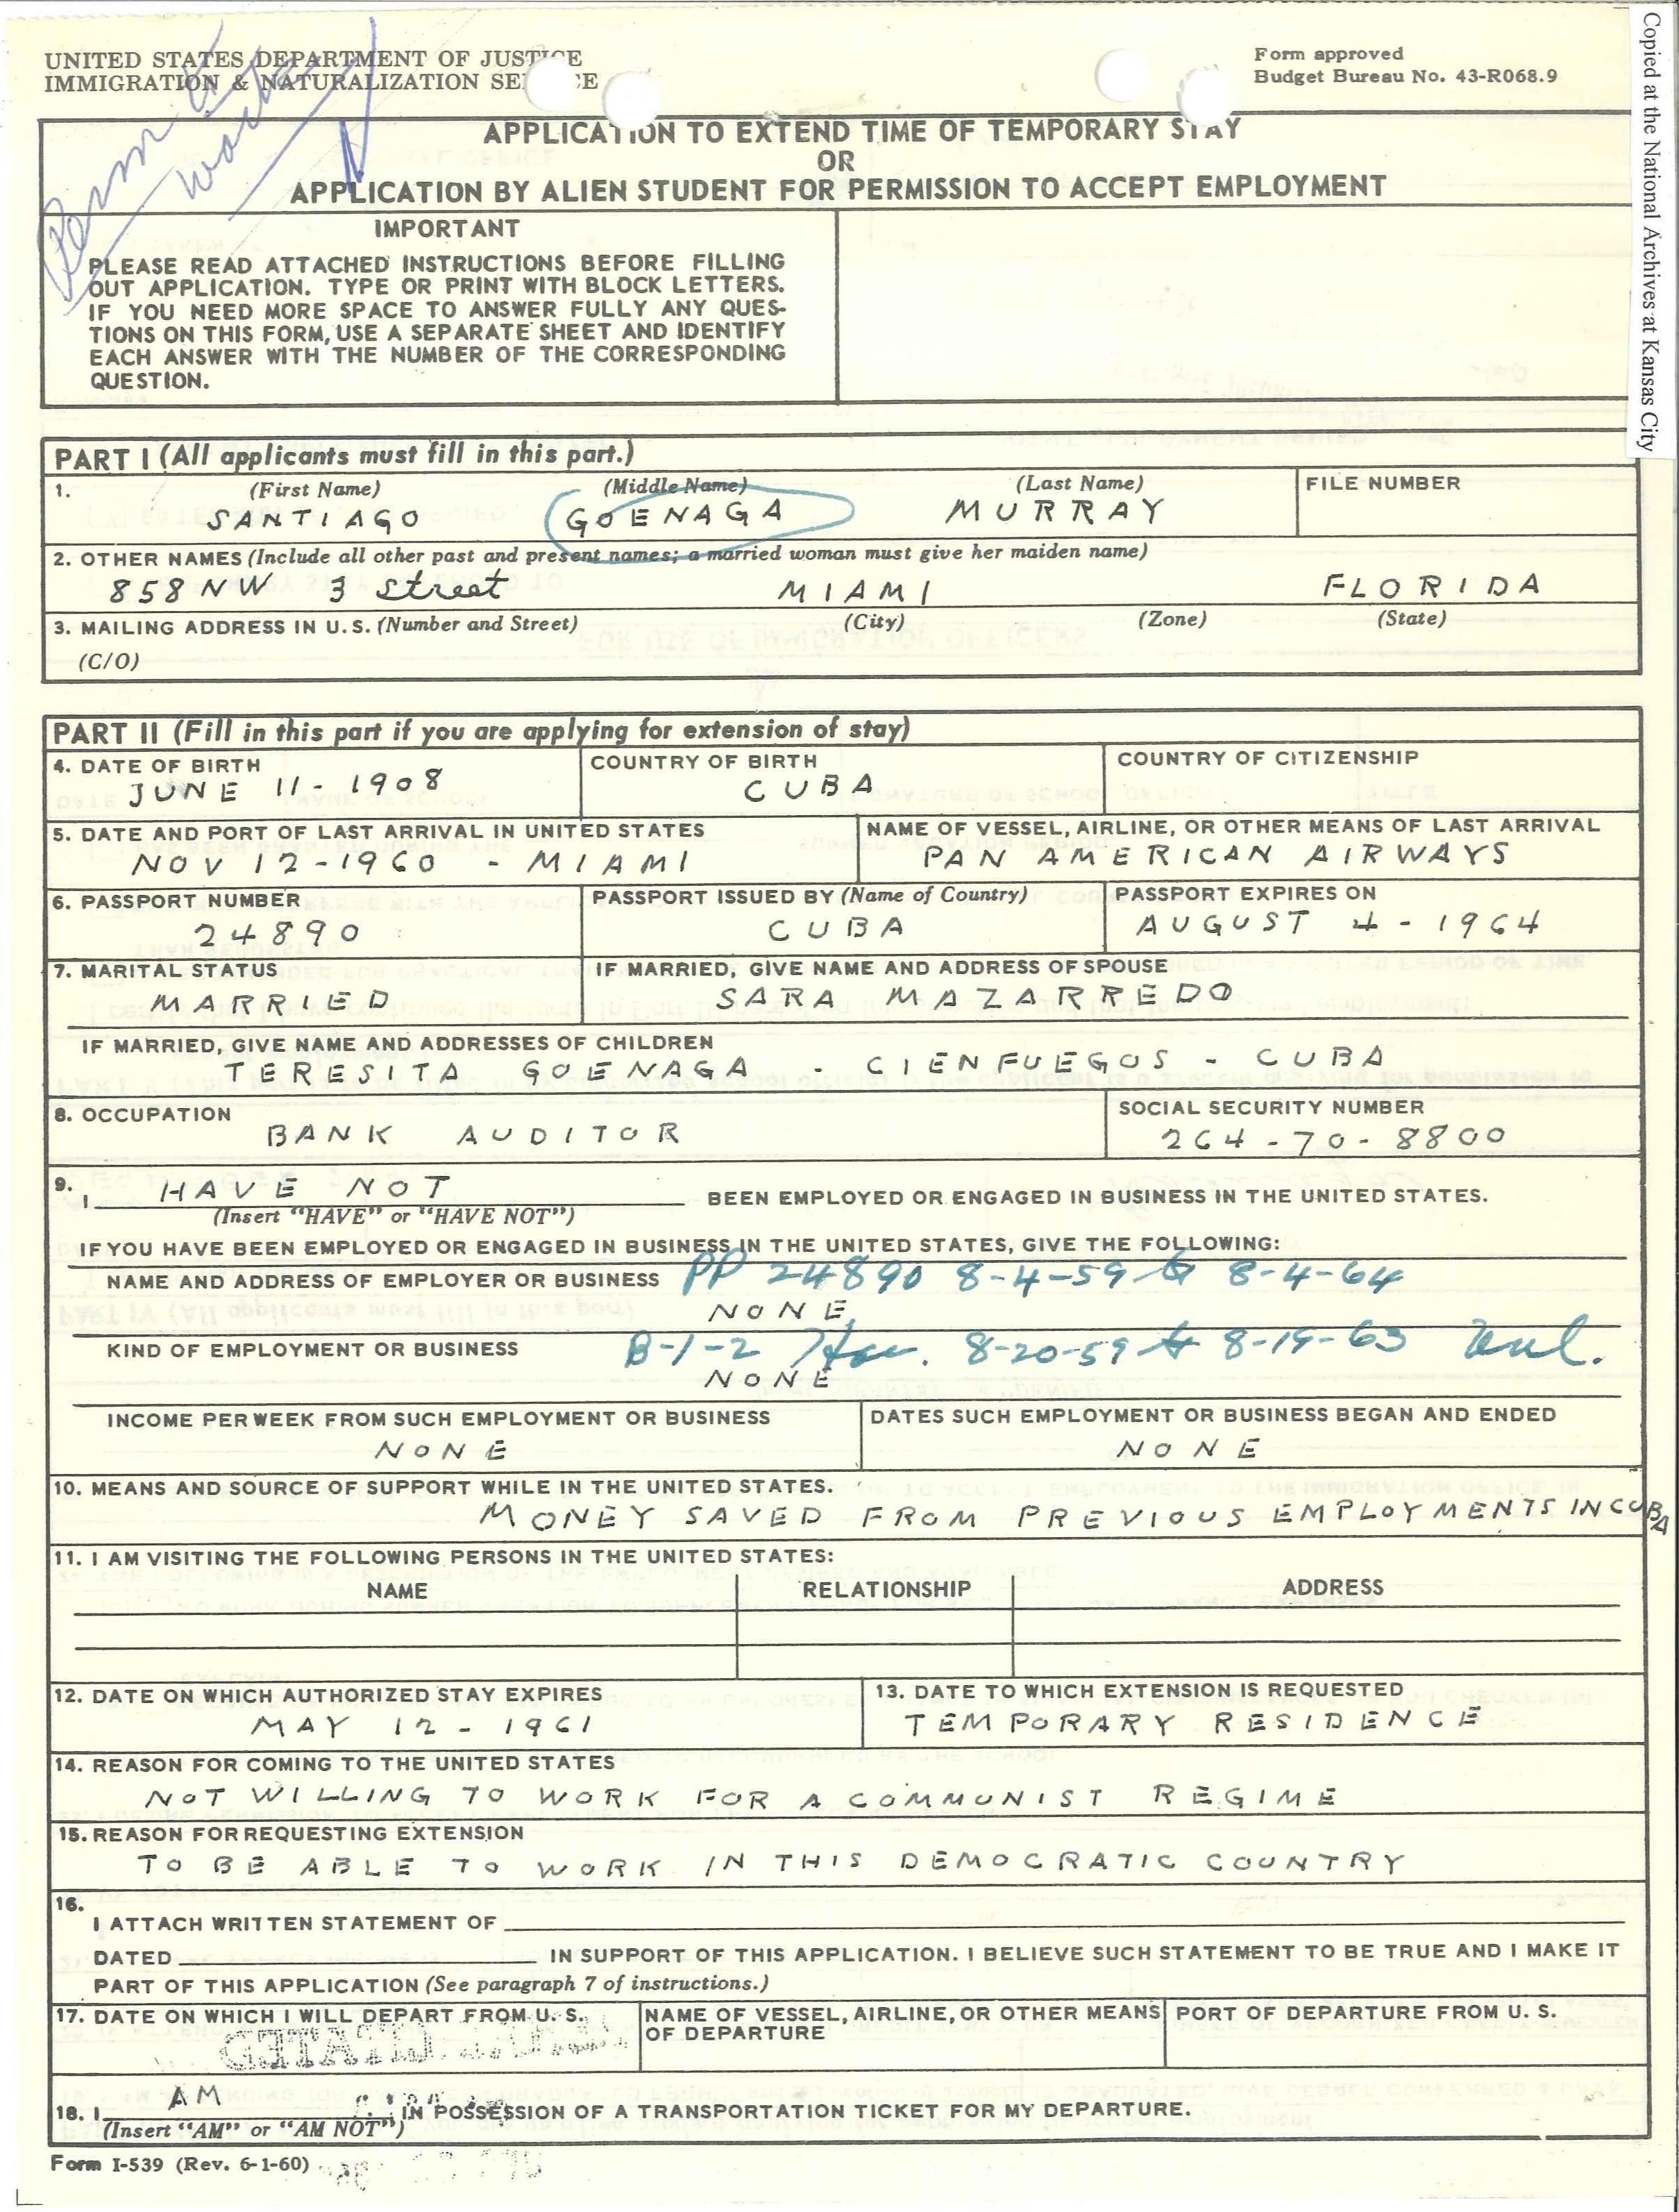 UNITED STATES DEPARTMENT OF JUSTICE
IMMIGRATION & NATURALIZATION SE CE
Form approved
Budget Bureau No. 43-R068.9
Copied at the National Archives at Kansas City
Perm
work
APPLICATION TO EXTEND TIME OF TEMPORARY STAY
OR
APPLICATION BY ALIEN STUDENT FOR PERMISSION TO ACCEPT EMPLOYMENT
IMPORTANT
PLEASE READ ATTACHED INSTRUCTIONS BEFORE FILLING
OUT APPLICATION. TYPE OR PRINT WITH BLOCK LETTERS.
IF YOU NEED MORE SPACE TO ANSWER FULLY ANY QUES-
TIONS ON THIS FORM, USE A SEPARATE SHEET AND IDENTIFY
EACH ANSWER WITH THE NUMBER OF THE CORRESPONDING
QUESTION.
PART I (All applicants must fill in this part.)
1. (First Name) (Middle Name) (Last Name) FILE NUMBER
SANTIAGO GOENAGA MURRAY
2. OTHER NAMES (Include all other past and present names; a married woman must give her maiden name)
858 NW 3 Street MIAMI FLORIDA
3. MAILING ADDRESS IN U.S. (Number and Street) (City) (Zone) (State)
(C/O)
PART II (Fill in this part if you are applying for extension of stay)
4. DATE OF BIRTH COUNTRY OF BIRTH COUNTRY OF CITIZENSHIP
JUNE 11-1908 CUBA
5. DATE AND PORT OF LAST ARRIVAL IN UNITED STATES NAME OF VESSEL, AIRLINE, OR OTHER MEANS OF LAST ARRIVAL
NOV 12-1960 - MIAMI PAN AMERICAN AIRWAYS
6. PASSPORT NUMBER PASSPORT ISSUED BY (Name of Country) PASSPORT EXPIRES ON
24890 CUBA AUGUST 4-1964
7. MARITAL STATUS IF MARRIED, GIVE NAME AND ADDRESS OF SPOUSE
MARRIED SARA MAZARREDO
IF MARRIED, GIVE NAME AND ADDRESSES OF CHILDREN
TERESITA GOENAGA - CIENFUEGOS - CUBA
8. OCCUPATION SOCIAL SECURITY NUMBER
BANK AUDITOR 264-70-8800
9. I HAVE NOT BEEN EMPLOYED OR ENGAGED IN BUSINESS IN THE UNITED STATES.
(Insert "HAVE" or "HAVE NOT")
IF YOU HAVE BEEN EMPLOYED OR ENGAGED IN BUSINESS IN THE UNITED STATES, GIVE THE FOLLOWING:
NAME AND ADDRESS OF EMPLOYER OR BUSINESS PP 24890 8-4-59 to 8-4-64
NONE
KIND OF EMPLOYMENT OR BUSINESS B-1-2 8-20-59 to 8-19-63
NONE
INCOME PER WEEK FROM SUCH EMPLOYMENT OR BUSINESS DATES SUCH EMPLOYMENT OR BUSINESS BEGAN AND ENDED
NONE NONE
10. MEANS AND SOURCE OF SUPPORT WHILE IN THE UNITED STATES.
MONEY SAVED FROM PREVIOUS EMPLOYMENTS IN CUBA
11. I AM VISITING THE FOLLOWING PERSONS IN THE UNITED STATES:
NAME RELATIONSHIP ADDRESS
12. DATE ON WHICH AUTHORIZED STAY EXPIRES 13. DATE TO WHICH EXTENSION IS REQUESTED
MAY 12-1961 TEMPORARY RESIDENCE
14. REASON FOR COMING TO THE UNITED STATES
NOT WILLING TO WORK FOR A COMMUNIST REGIME
15. REASON FOR REQUESTING EXTENSION
TO BE ABLE TO WORK IN THIS DEMOCRATIC COUNTRY
16.
I ATTACH WRITTEN STATEMENT OF
DATED IN SUPPORT OF THIS APPLICATION. I BELIEVE SUCH STATEMENT TO BE TRUE AND I MAKE IT
PART OF THIS APPLICATION (See paragraph 7 of instructions.)
17. DATE ON WHICH I WILL DEPART FROM U. S. NAME OF VESSEL, AIRLINE, OR OTHER MEANS PORT OF DEPARTURE FROM U. S.
OF DEPARTURE
18. I AM IN POSSESSION OF A TRANSPORTATION TICKET FOR MY DEPARTURE.
(Insert "AM" or "AM NOT")
Form I-539 (Rev. 6-1-60)